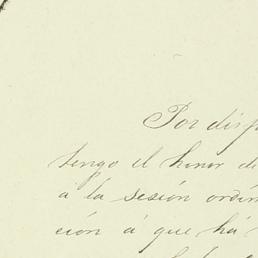 Por disp
tengo el honor de
a la sesión ordin
ción á que há